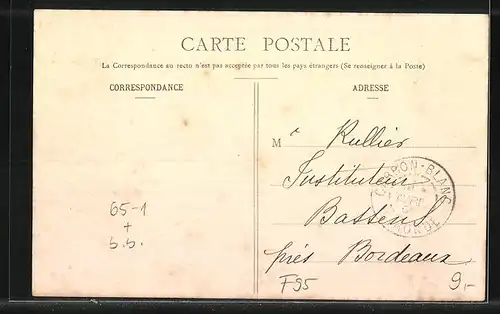 CARTE POSTALE
La Correspondance au recto n'est pas acceptée par tous les pays étrangers (Se renseigner à la Poste)
CORRESPONDANCE
ADRESSE
M r Rullier
Instituteur
Bassens
près Bordeaux
CARBON-BLANC
GIRONDE
65-1
+
b.b.
F95
9,-